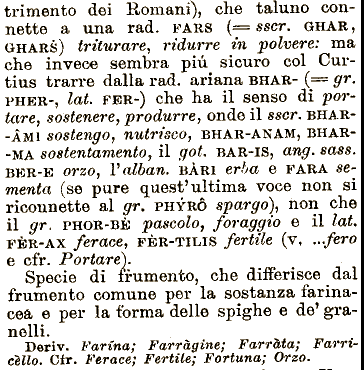 trimento dei Romani), che taluno con-
nette a una rad. FARS (= sscr. GHAR,
GHARŠ) triturare, ridurre in polvere: ma
che invece sembra piú sicuro col Cur-
tius trarre dalla rad. ariana BHAR- (= gr.
PHER-, lat. FER-) che ha il senso di por-
tare, sostenere, produrre, onde il sscr. BHAR-
-ÂMI sostengo, nutrisco, BHAR-ANAM, BHAR-
-MA sostentamento, il got. BAR-IS, ang. sass.
BER-E orzo, l'alban. BÀRI erba e FARA se-
menta (se pure quest'ultima voce non si
riconnette al gr. PHYRÔ spargo), non che
il gr. PHOR-BÈ pascolo, foraggio e il lat.
FÈR-AX ferace, FÈR-TILIS fertile (v. ...fero
e cfr. Portare).
Specie di frumento, che differisce dal
frumento comune per la sostanza farina-
cea e per la forma delle spighe e de' gra-
nelli.
Deriv. Farína; Farràgine; Farràta; Farri-
cèllo. Cfr. Ferace; Fertile; Fortuna; Orzo.